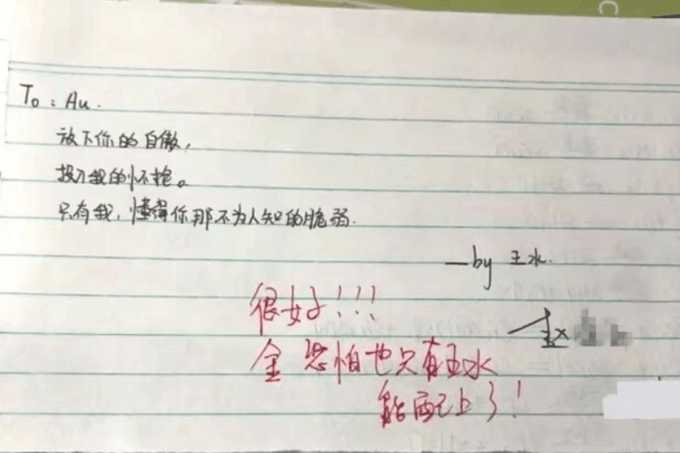 To: Au.
放下你的自傲,
投入我的怀抱。
只有我,懂得你那不为人知的脆弱.
—by 王水.
很好!!!
金恐怕也只有王水
能配上了!
赵